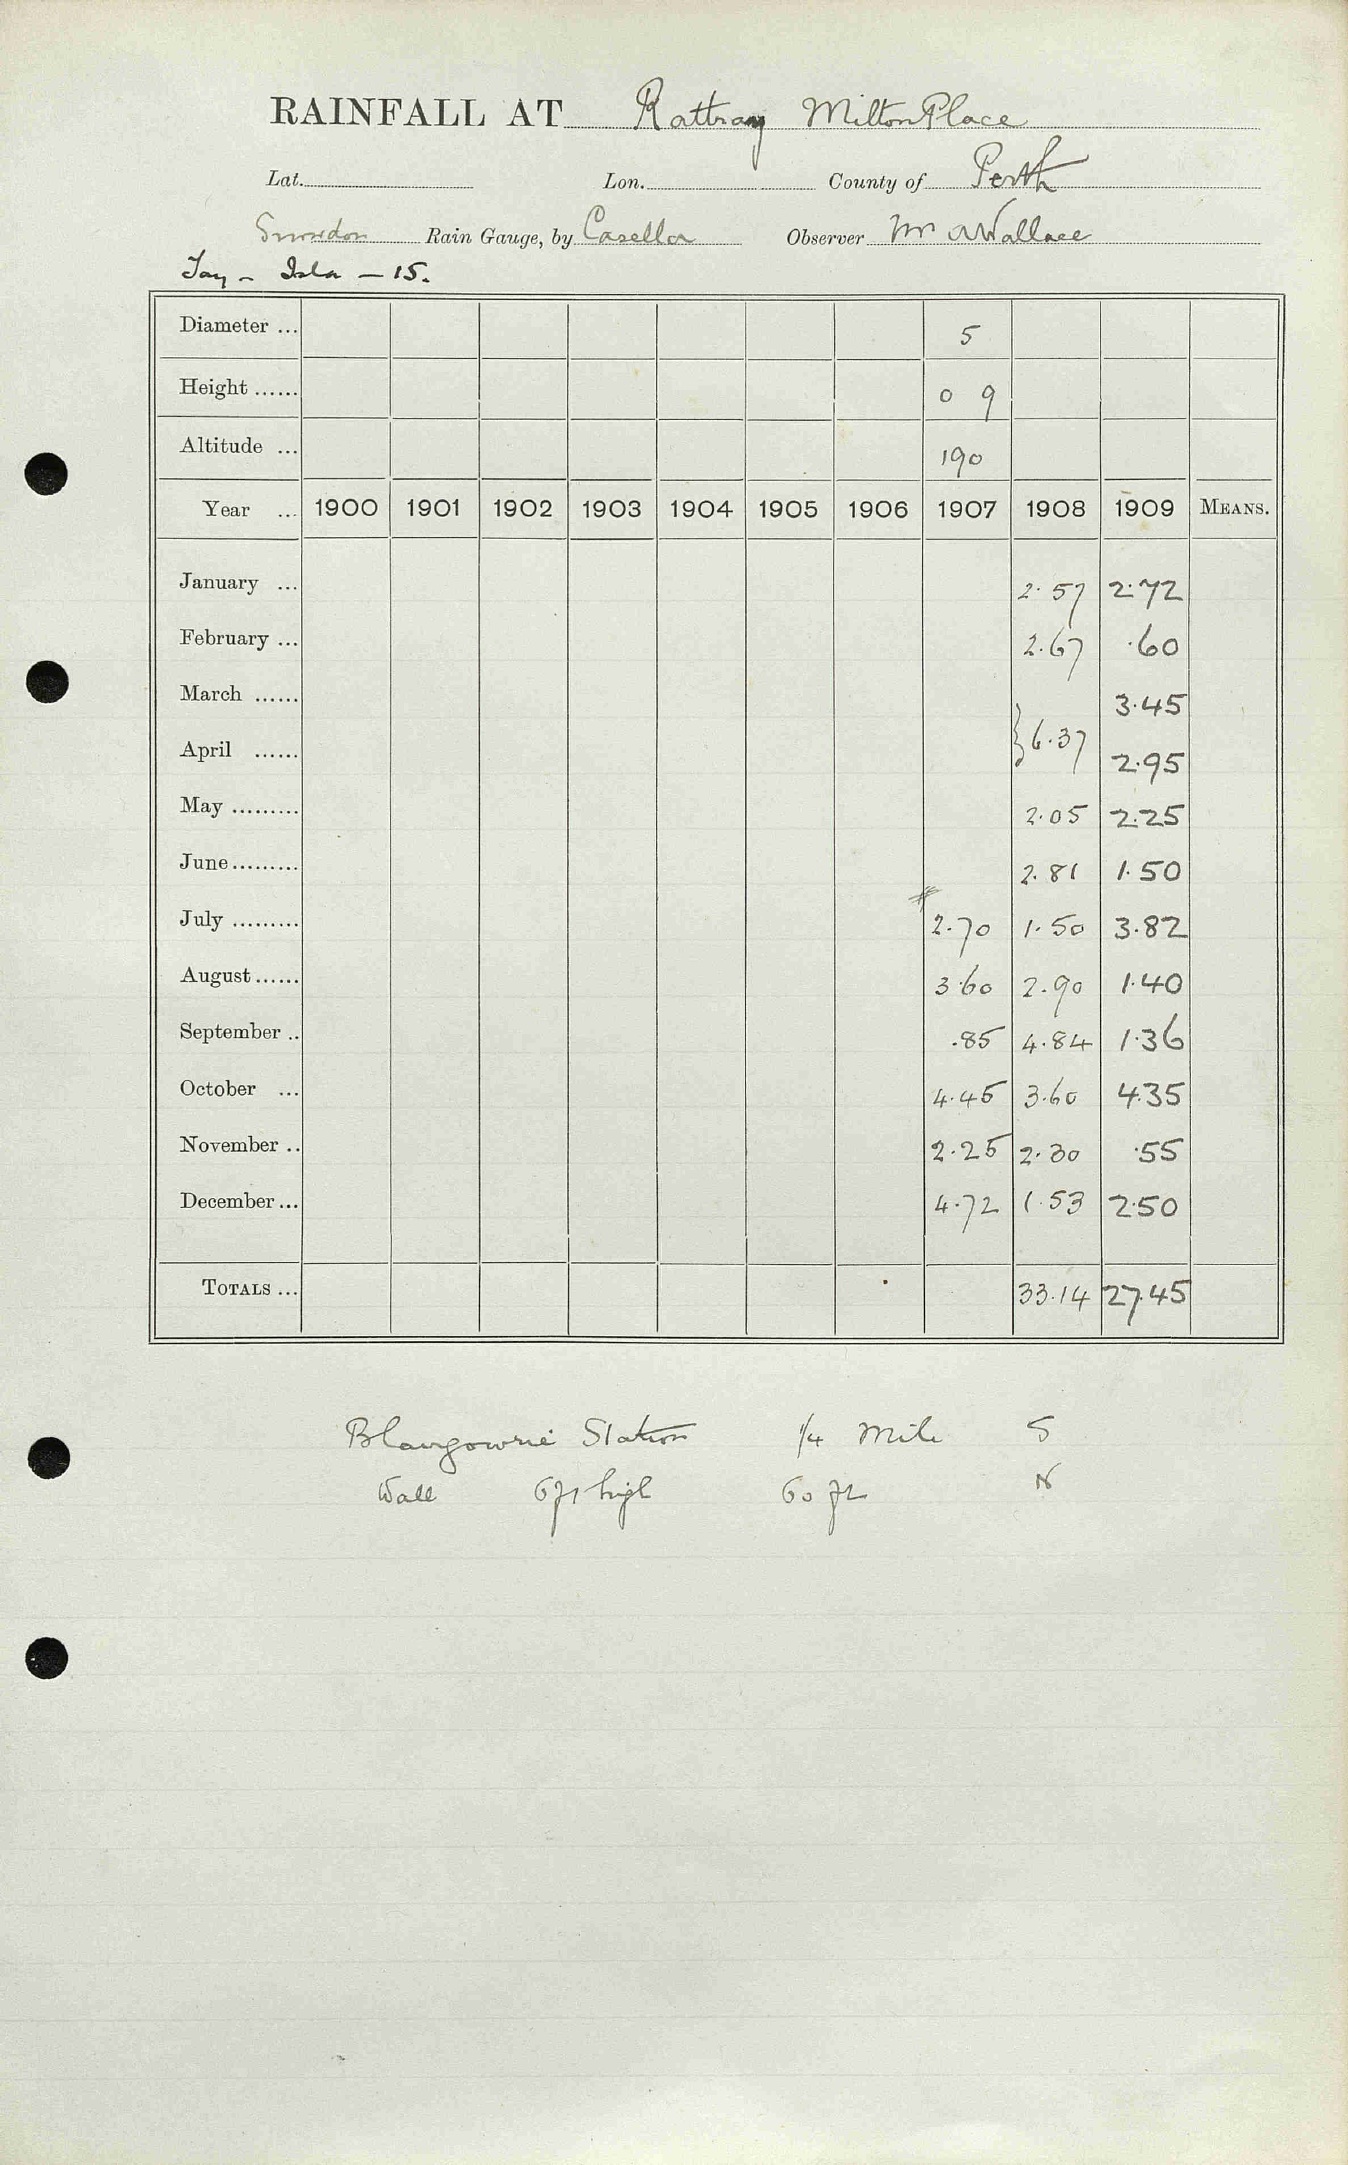 RAINFALL AT Rattray Milton Place
Lat. Lon. County of Perth
Snowdon Rain Gauge, by Casella Observer Mr A Wallace
Tay - Isla - 15.
Diameter ... 5
Height ...... 0 9
Altitude ... 190
Year ... 1900 1901 1902 1903 1904 1905 1906 1907 1908 1909 MEANS.
January ... 2.57 2.72
February ... 2.67 .60
March ...... 3.45
} 6.37
April ...... 2.95
May ......... 2.05 2.25
June ......... 2.81 1.50
July ......... 2.70 1.50 3.82
August ...... 3.60 2.90 1.40
September .. .85 4.84 1.36
October ... 4.45 3.60 4.35
November .. 2.25 2.30 .55
December ... 4.72 1.53 2.50
TOTALS ... 33.14 27.45
Blairgowrie Station 1/4 Mile S
Wall 6ft high 60 ft N